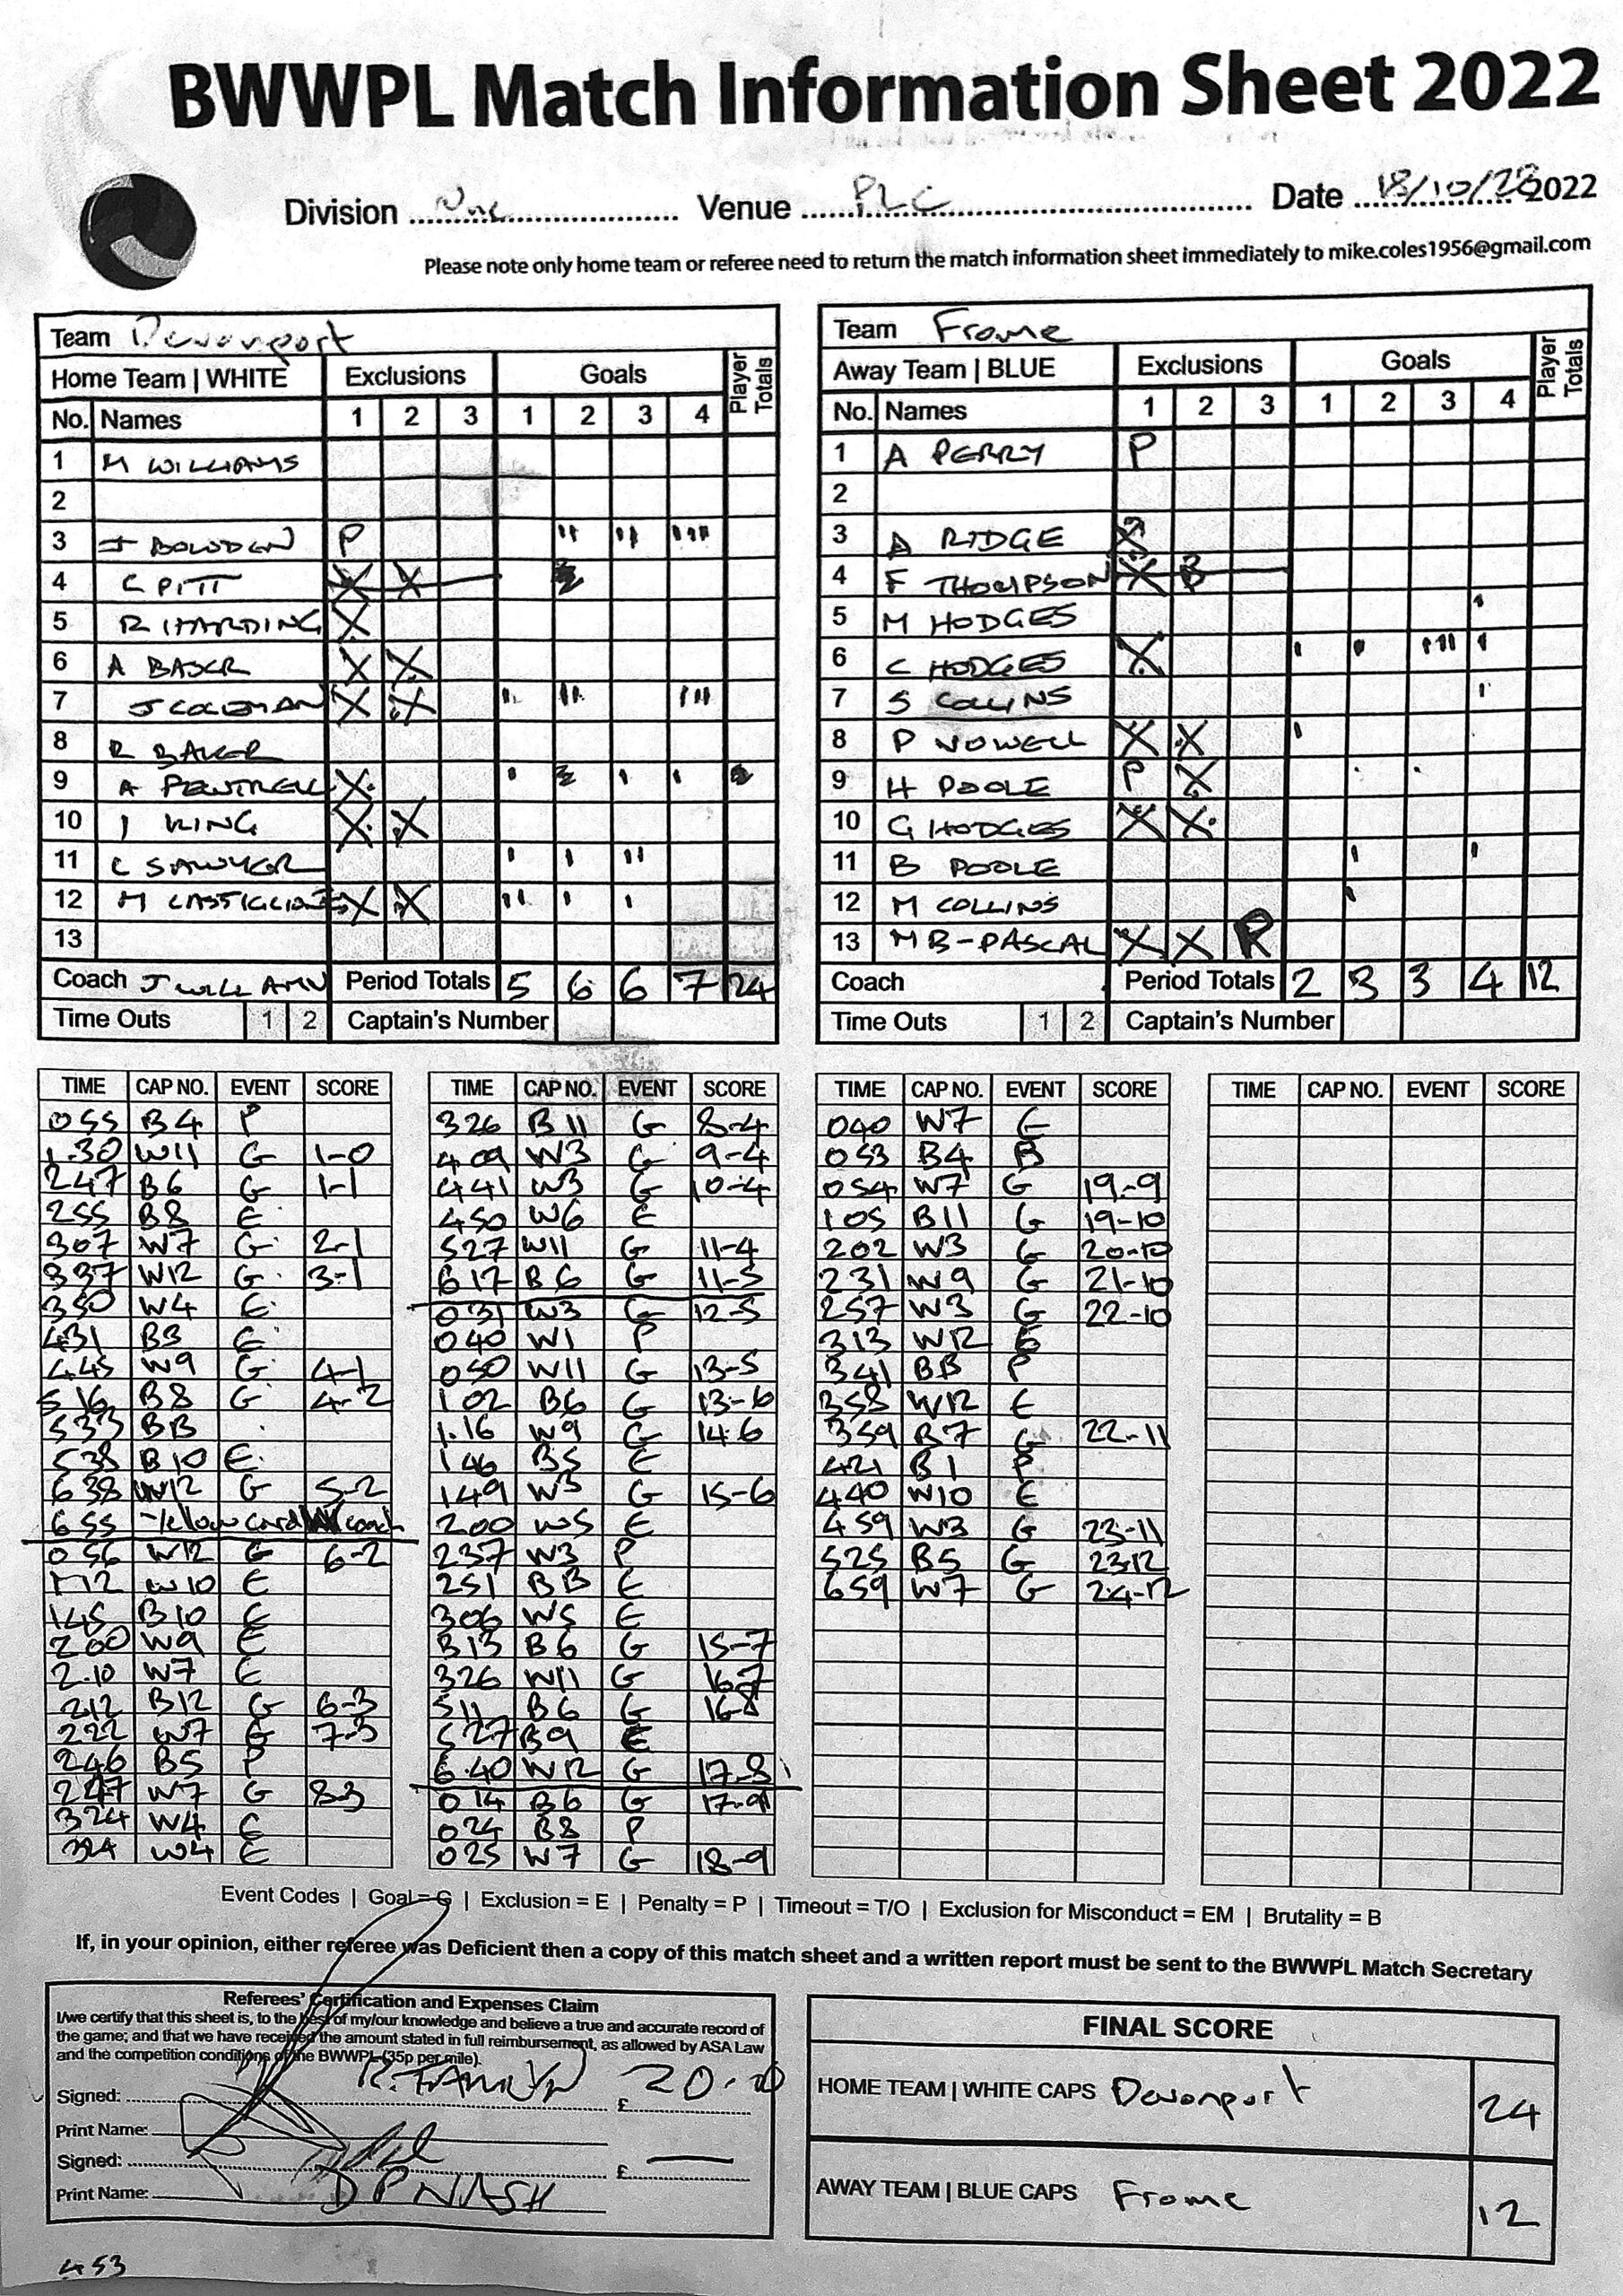 BWWPL Match Information Sheet 2022
Division Venue PLC Date 18/10/22 2022
Please note only home team or referee need to return the match information sheet immediately to mike.coles1956@gmail.com
Team Devonport
Home Team | WHITE Exclusions Goals Player Totals
No. Names 1 2 3 1 2 3 4
1 M WILLIAMS
2
3 J BOWDEN P
4 C PITT X X
5 R HARDING X
6 A BAJCR X X
7 J COLEMAN X X
8 R BAKER
9 A PENTRELL X
10 J KING X X
11 C SAWYER
12 M X X
13
Coach Period Totals 5 6 6 7 24
Time Outs 1 2 Captain's Number
Team Frome
Away Team | BLUE Exclusions Goals Player Totals
No. Names 1 2 3 1 2 3 4
1 A PERRY P
2
3 A RIDGE X
4 F THOMPSON X B
5 M HODGES
6 C HODGES X
7 S COLLINS
8 P NOWELL X X
9 H POOLE P X
10 G HODGES X X
11 B POOLE
12 M COLLINS
13 M B-PASCAL X X R
Coach Period Totals 2 3 3 4 12
Time Outs 1 2 Captain's Number
TIME CAP NO. EVENT SCORE
055 B4 P
1.30 W11 G 1-0
247 B6 G 1-1
255 B8 E
307 W7 G 2-1
337 W12 G 3-1
350 W4 E
431 B3 E
445 W9 G 4-1
516 B8 G 4-2
533 B13
538 B10 E
638 W12 G 5-2
655 Yellow card W coach
056 W12 G 6-2
1.12 W10 E
145 B10 E
200 W9 E
2.10 W7 E
212 B12 G 6-3
222 W7 G 7-3
246 B5 P
247 W7 G 8-3
324 W4 E
324 W4 E
TIME CAP NO. EVENT SCORE
326 B11 G 8-4
409 W3 G 9-4
441 W3 G 10-4
450 W6 E
527 W11 G 11-4
617 B6 G 11-5
031 W3 G 12-5
040 W1 P
050 W11 G 13-5
1.02 B6 G 13-6
1.16 W9 G 14-6
146 B5 E
149 W3 G 15-6
200 W5 E
237 W3 P
251 B13 E
306 W5 E
313 B6 G 15-7
326 W11 G 16-7
511 B6 G 16-8
527 B9 E
6.40 W12 G 17-8
014 B6 G 17-9
024 B8 P
025 W7 G 18-9
TIME CAP NO. EVENT SCORE
040 W7 E
053 B4 B
054 W7 G 19-9
105 B11 G 19-10
202 W3 G 20-10
231 W9 G 21-10
257 W3 G 22-10
313 W12 E
341 B13 P
358 W12 E
359 B7 G 22-11
421 B1 P
440 W10 E
459 W3 G 23-11
525 B5 G 23-12
659 W7 G 24-12
TIME CAP NO. EVENT SCORE
Event Codes | Goal = G | Exclusion = E | Penalty = P | Timeout = T/O | Exclusion for Misconduct = EM | Brutality = B
If, in your opinion, either referee was Deficient then a copy of this match sheet and a written report must be sent to the BWWPL Match Secretary
Referees' Certification and Expenses Claim
I/we certify that this sheet is, to the best of my/our knowledge and believe a true and accurate record of
the game; and that we have received the amount stated in full reimbursement, as allowed by ASA Law
and the competition conditions of the BWWPL (35p per mile).
Signed: £ 20-00
Print Name:
Signed: £ —
Print Name: D P NASH
FINAL SCORE
HOME TEAM | WHITE CAPS Devonport 24
AWAY TEAM | BLUE CAPS Frome 12
453